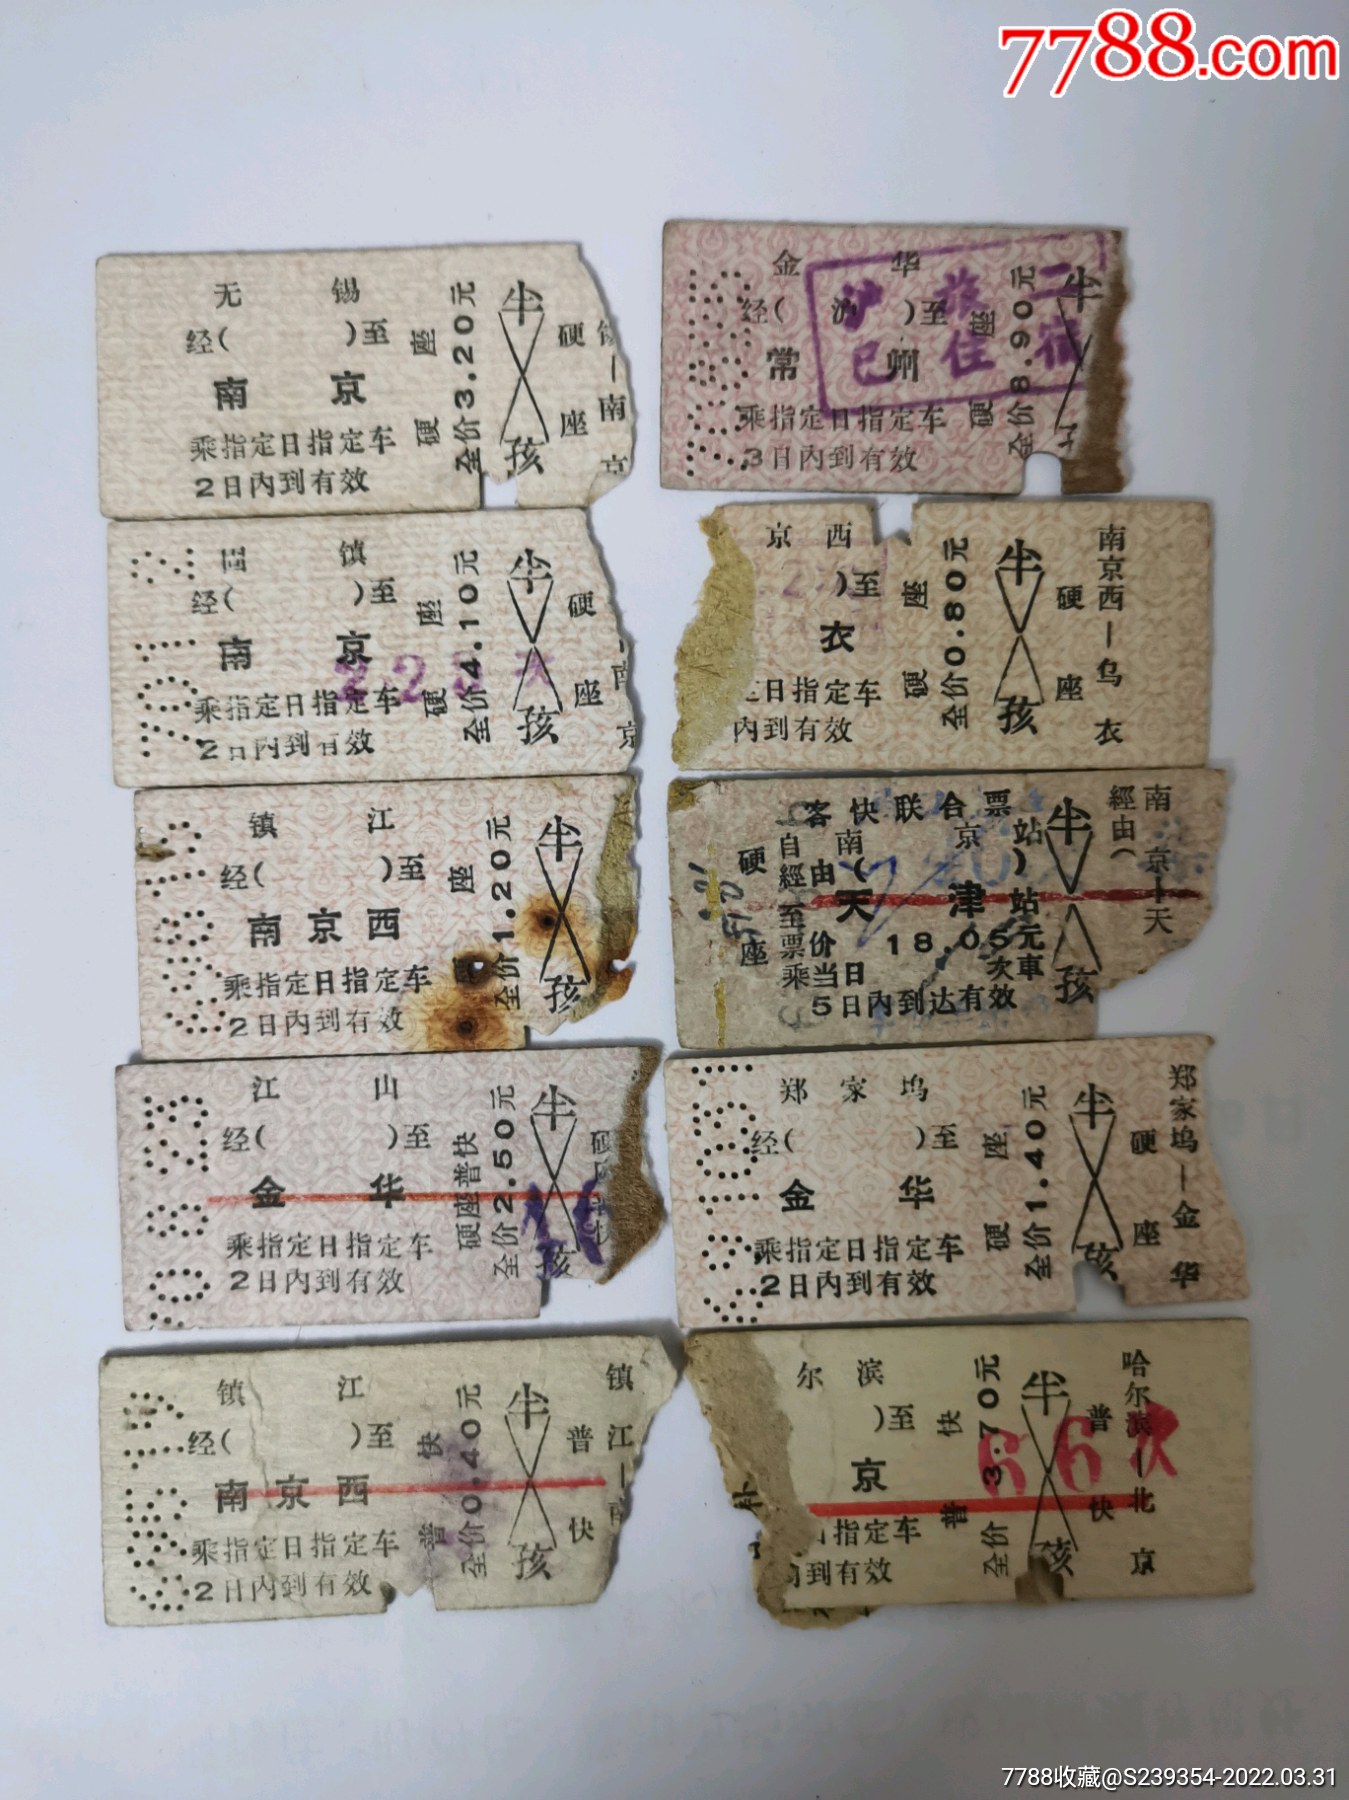 7788.com
无 锡
经( )至
南 京
乘指定日指定车
2日内到有效
硬 座
全价3.20元
半
孩
硬 座
南 京
金 华
经( 沪 )至
常 州
乘指定日指定车
3日内到有效
硬 座
全价8.90元
半
二
旅 宿
沪 住
已
镇
经( )至
南 京
乘指定日指定车
2日内到有效
硬 座
全价4.10元
半
孩
硬 座
南 京
京 西
)至
衣
日指定车
内到有效
硬 座
全价0.80元
半
孩
硬 座
南京西—乌衣
镇 江
经( )至
南京西
乘指定日指定车
2日内到有效
座
全价1.20元
半
孩
客快联合票
自 南 京 站
經由( )
至 天 津 站
票价 18.05元
乘当日 次車
5日内到达有效
硬 座
半
孩
經由(
南京—天
江 山
经( )至
金 华
乘指定日指定车
2日内到有效
硬座普快
全价2.50元
半
孩
郑家坞
经( )至
金 华
乘指定日指定车
2日内到有效
硬 座
全价1.40元
半
孩
硬 座
郑家坞—金华
镇 江
经( )至
南京西
乘指定日指定车
2日内到有效
普 快
全价0.40元
半
孩
普 快
镇江—
尔 滨
)至
京
日指定车
内到有效
普 快
全价3.70元
半
孩
普 快
哈尔滨—北京
66次
7788收藏@S239354-2022.03.31